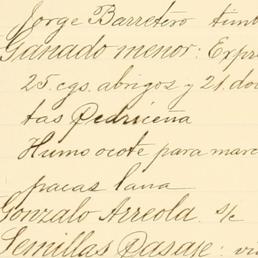 Jorge Barretero timb
Ganado menor: Expr
25. cgs. abrigos y 21. do
tas Pedriceña
Humo ocote para marc
pacas lana
Gonzalo Arreola s/c
Semillas Pasaje: vi